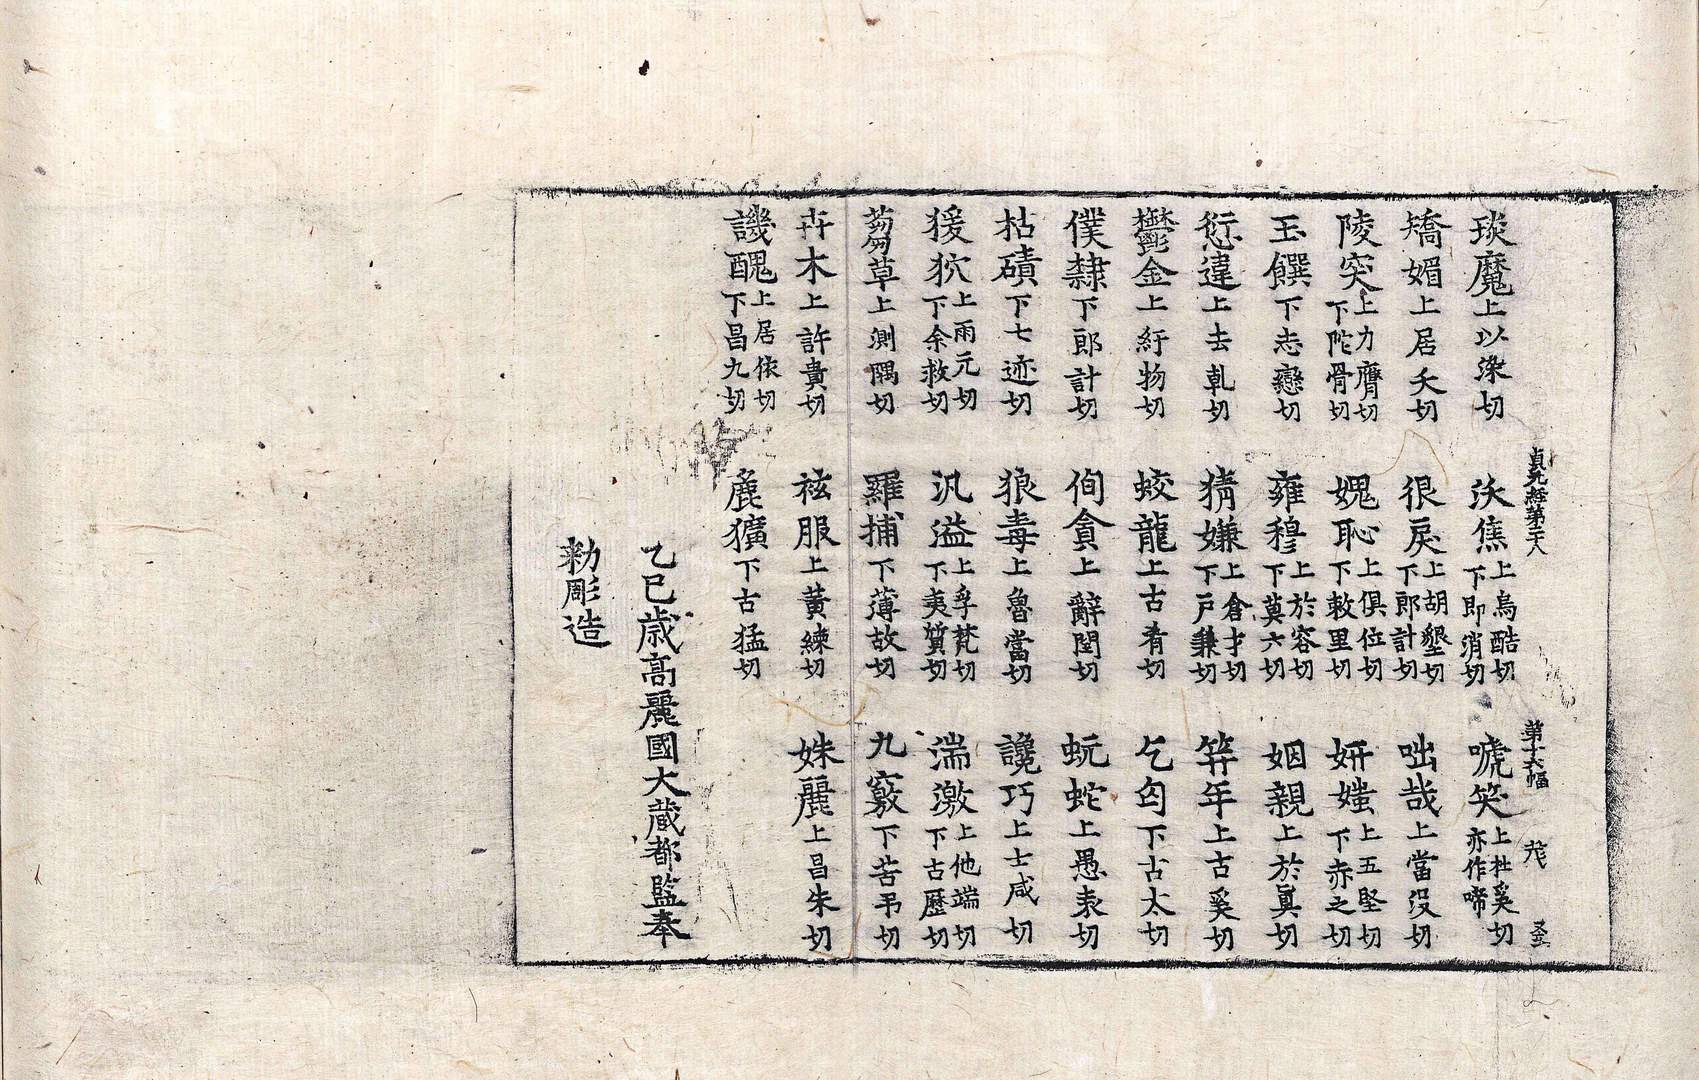 貞元經第三十八 第十六幅 茂
琰魔上以染切 沃焦上烏酷切下即消切 㖷笑上杜奚切亦作啼
矯媚上居夭切 很戾上胡墾切下郎計切 咄哉上當没切
陵突上力膺切下陀骨切 媿恥上俱位切下敕里切 妍媸上五堅切下赤之切
玉饌下志戀切 雍穆上於容切下莫六切 姻親上於真切
愆違上去乹切 猜嫌上倉才切下戸兼切 筓年上古奚切
鬱金上紆物切 蛟龍上古肴切 乞匃下古太切
僕隸下郎計切 侚貪上辭閏切 蚖蛇上愚袁切
枯磧下七迹切 狼毒上魯當切 讒巧上士咸切
猨狖上雨元切下余救切 汎溢上孚梵切下夷質切 湍激上他端切下古歷切
蒭草上測隅切 羅捕下薄故切 九竅下苦弔切
卉木上許貴切 袨服上黃練切 姝麗上昌朱切
譏醜上居依切下昌九切 麁獷下古猛切
乙巳歲高麗國大藏都監奉
勅彫造